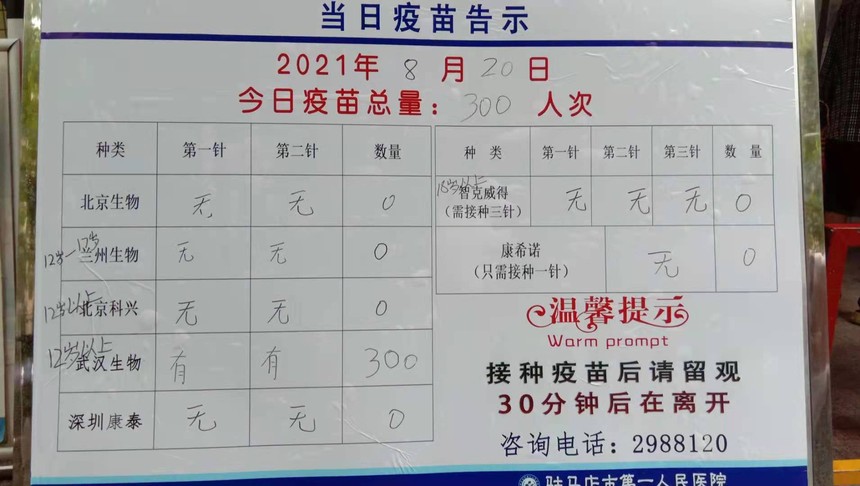 当日疫苗告示
2021年 8 月 20 日
今日疫苗总量：300 人次
种类 第一针 第二针 数量
北京生物 无 无 0
12岁—17岁 兰州生物 无 无 0
12岁以上 北京科兴 无 无 0
12岁以上 武汉生物 有 有 300
深圳康泰 无 无 0
种 类 第一针 第二针 第三针 数 量
18岁以上 智克威得
（需接种三针） 无 无 无 0
康希诺
（只需接种一针） 无 0
温馨提示
Warm prompt
接种疫苗后请留观
30分钟后在离开
咨询电话：2988120
驻马店市第一人民医院